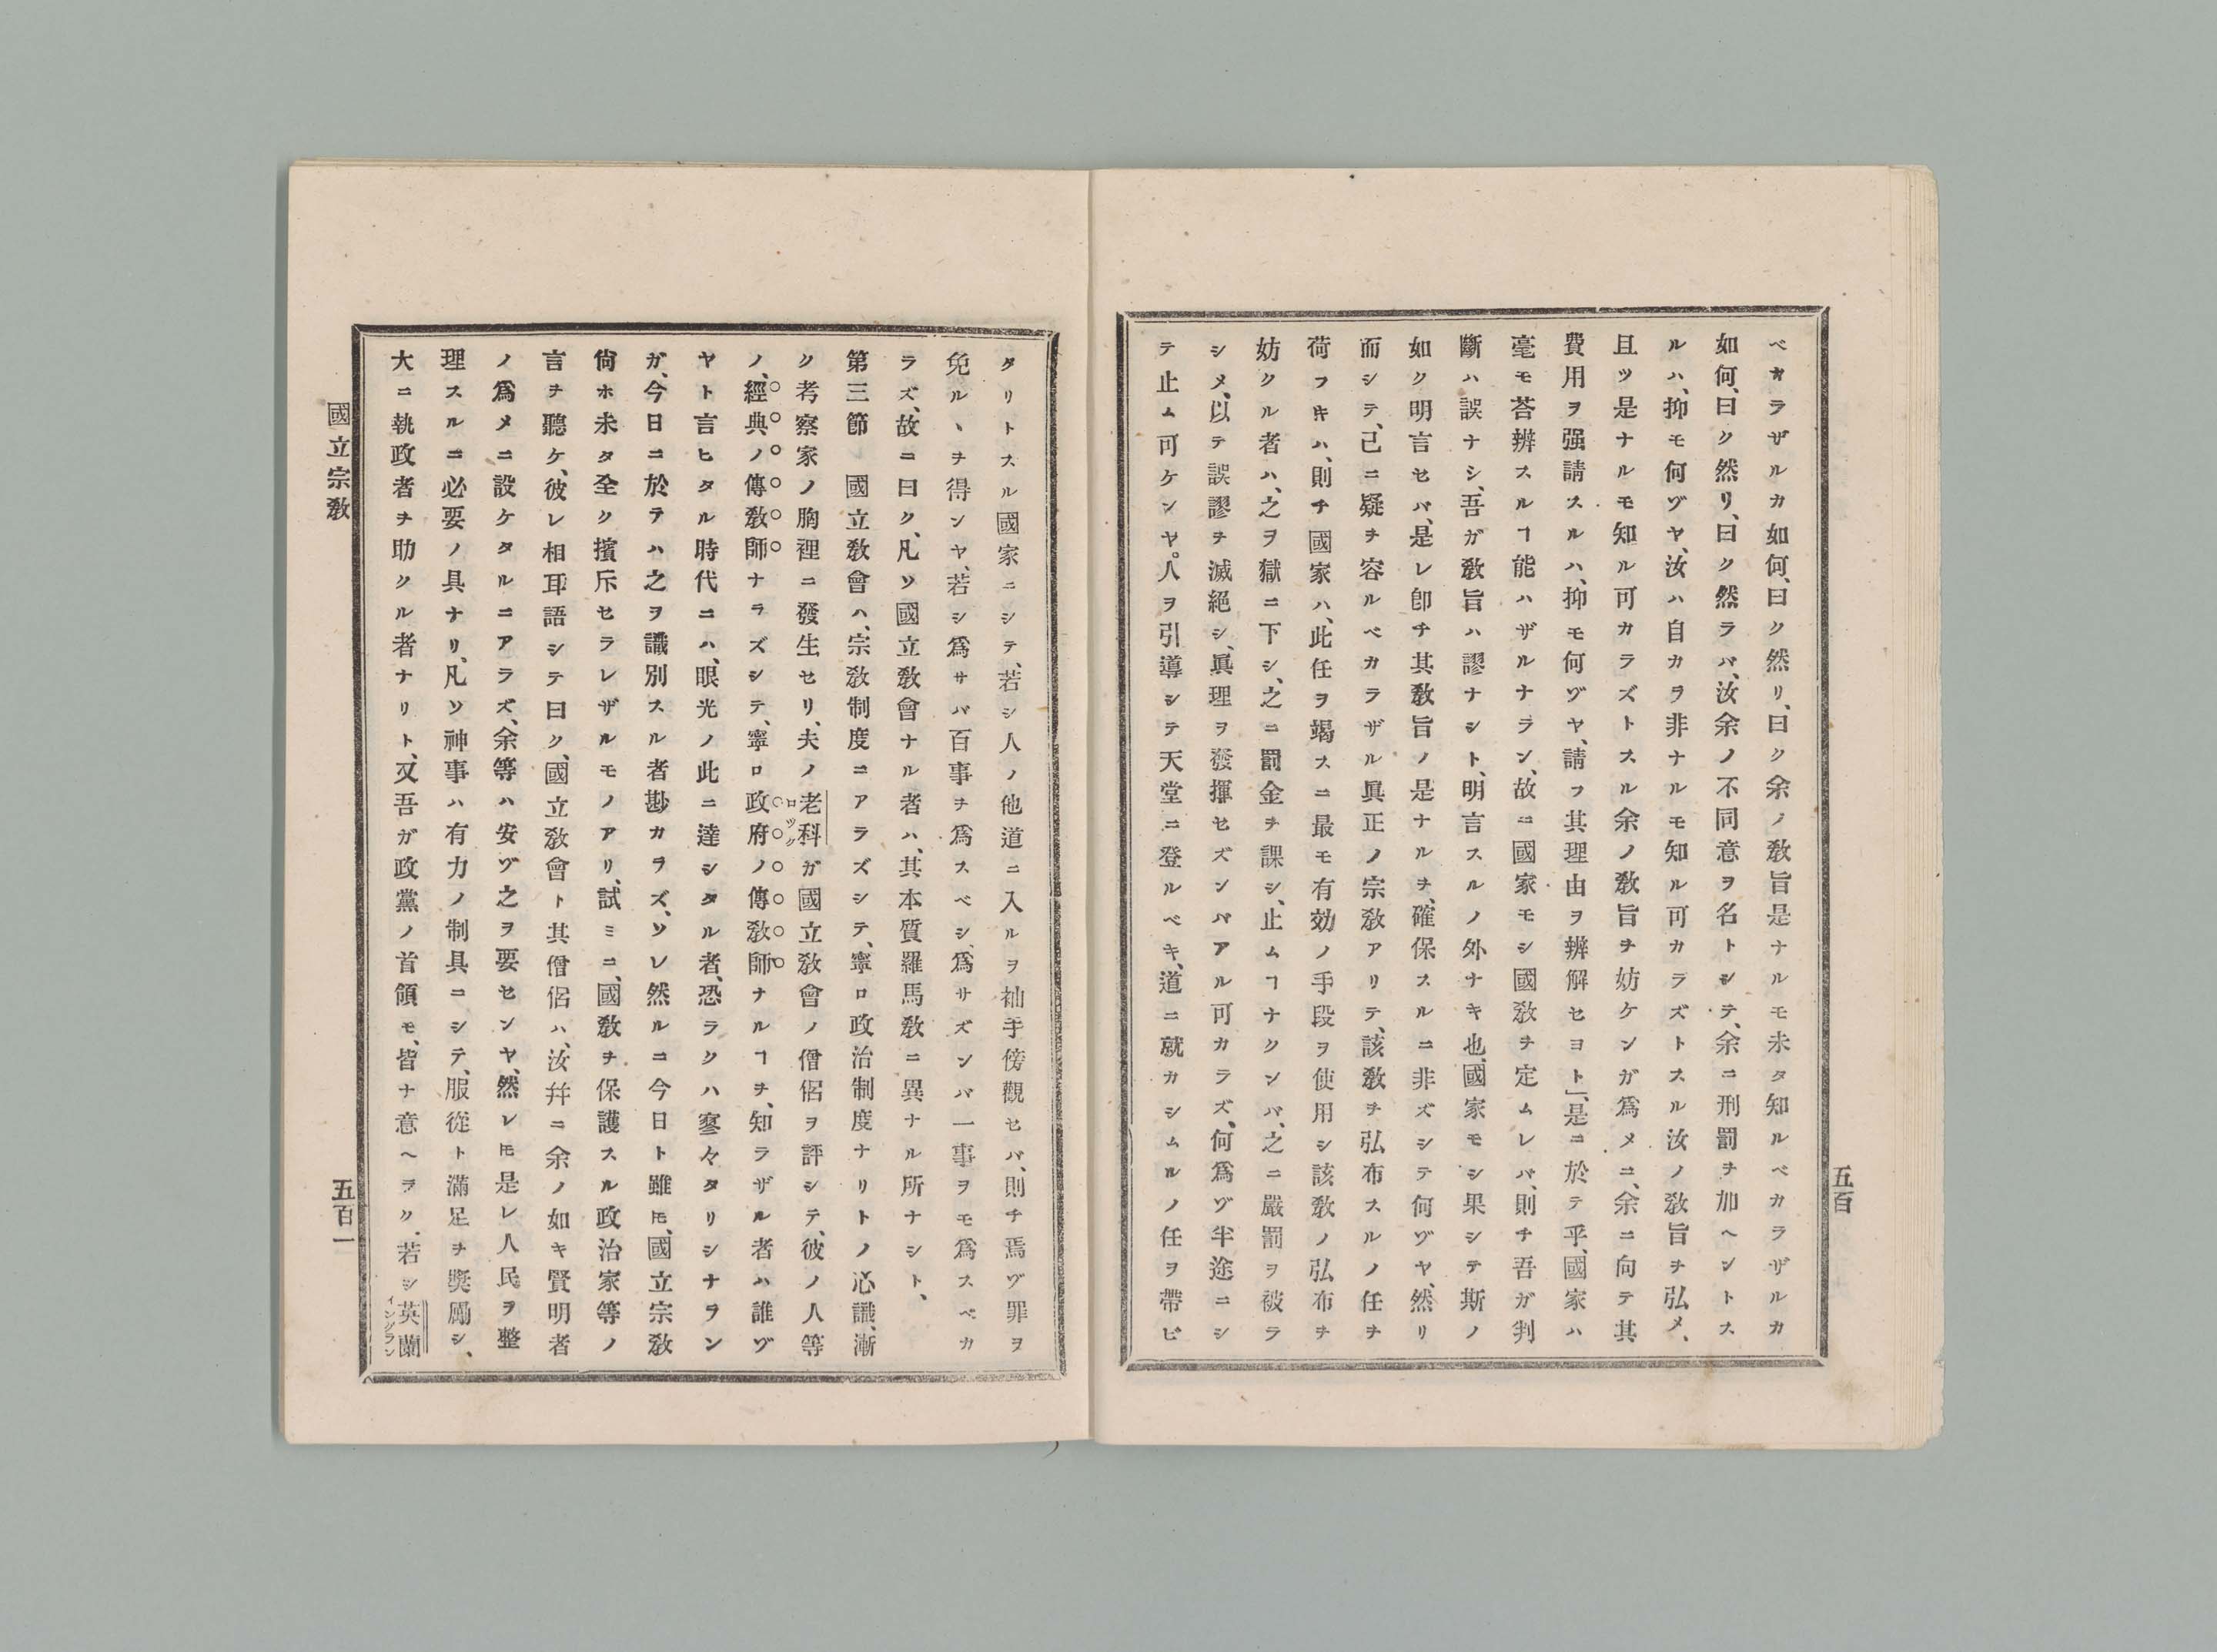 ベカラザルカ如何、曰ク然リ、曰ク余ノ敎旨是ナルモ未タ知ルベカラザルカ
如何、曰ク然リ、曰ク然ラバ、汝余ノ不同意ヲ名トシテ、余ニ刑罰ヲ加ヘントス
ルハ、抑モ何ヅヤ、汝ハ自カラ非ナルモ知ル可カラズトスル汝ノ敎旨ヲ弘メ、
且ツ是ナルモ知ル可カラズトスル余ノ敎旨ヲ妨ケンガ爲メニ、余ニ向テ其
費用ヲ强請スルハ、抑モ何ヅヤ、請フ其理由ヲ辨解セヨト」、是ニ於テ乎、國家ハ
毫モ荅辨スルヿ能ハザルナラン、故ニ國家モシ國敎ヲ定ムレバ、則チ吾ガ判
斷ハ誤ナシ、吾ガ敎旨ハ謬ナシト、明言スルノ外ナキ也、國家モシ果シテ斯ノ
如ク明言セバ、是レ卽チ其敎旨ノ是ナルヲ、確保スルニ非ズシテ何ヅヤ、然リ
而シテ、已ニ疑ヲ容ルベカラザル眞正ノ宗敎アリテ、該敎ヲ弘布スルノ任ヲ
荷フキハ、則チ國家ハ、此任ヲ竭スニ最モ有効ノ手段ヲ使用シ該敎ノ弘布ヲ
妨クル者ハ、之ヲ獄ニ下シ、之ニ罰金ヲ課シ、止ムヿナクンバ、之ニ嚴罰ヲ被ラ
シメ、以テ誤謬ヲ滅絕シ、眞理ヲ發揮セズンバアル可カラズ、何爲ヅ半途ニシ
テ止ム可ケンヤ。人ヲ引導シテ天堂ニ登ルベキ、道ニ就カシムルノ任ヲ帶ビ
五百
タリトスル國家ニシテ、若シ人ノ他道ニ入ルヲ袖手傍觀セバ、則チ焉ヅ罪ヲ
免ル丶ヲ得ンヤ、若シ爲サバ百事ヲ爲スベシ、爲サズンバ一事ヲモ爲スベカ
ラズ、故ニ曰ク、凡ソ國立敎會ナル者ハ、其本質羅馬敎ニ異ナル所ナシト、
第三節　國立敎會ハ、宗敎制度ニアラズシテ、寧ロ政治制度ナリトノ心識、漸
ク考察家ノ胸裡ニ發生セリ、夫ノ老科ロックガ國立敎會ノ僧侶ヲ評シテ、彼ノ人等
ノ、經典ノ傳敎師ナラズシテ、寧ロ政府ノ傳敎師ナルヿヲ、知ラザル者ハ誰ゾ
ヤト言ヒタル時代ニハ、眼光ノ此ニ達シタル者、恐ラクハ寥々タリシナラン
ガ、今日ニ於テハ之ヲ識別スル者尠カラズ、ソレ然ルニ今日ト雖𪜈、國立宗敎
尙ホ未タ全ク擯斥セラレザルモノアリ、試ミニ、國敎ヲ保護スル政治家等ノ
言ヲ聽ケ、彼レ相耳語シテ曰ク、國立敎會ト其僧侶ハ、汝幷ニ余ノ如キ賢明者
ノ爲メニ設ケタルニアラズ、余等ハ安ヅ之ヲ要センヤ、然レ𪜈是レ人民ヲ整
理スルニ必要ノ具ナリ、凡ソ神事ハ有力ノ制具ニシテ、服從ト滿足ヲ奬勵シ、
大ニ執政者ヲ助クル者ナリト、又吾ガ政黨ノ首領モ、皆ナ意ヘラク、若シ英蘭イングラン
國立宗敎
五百一